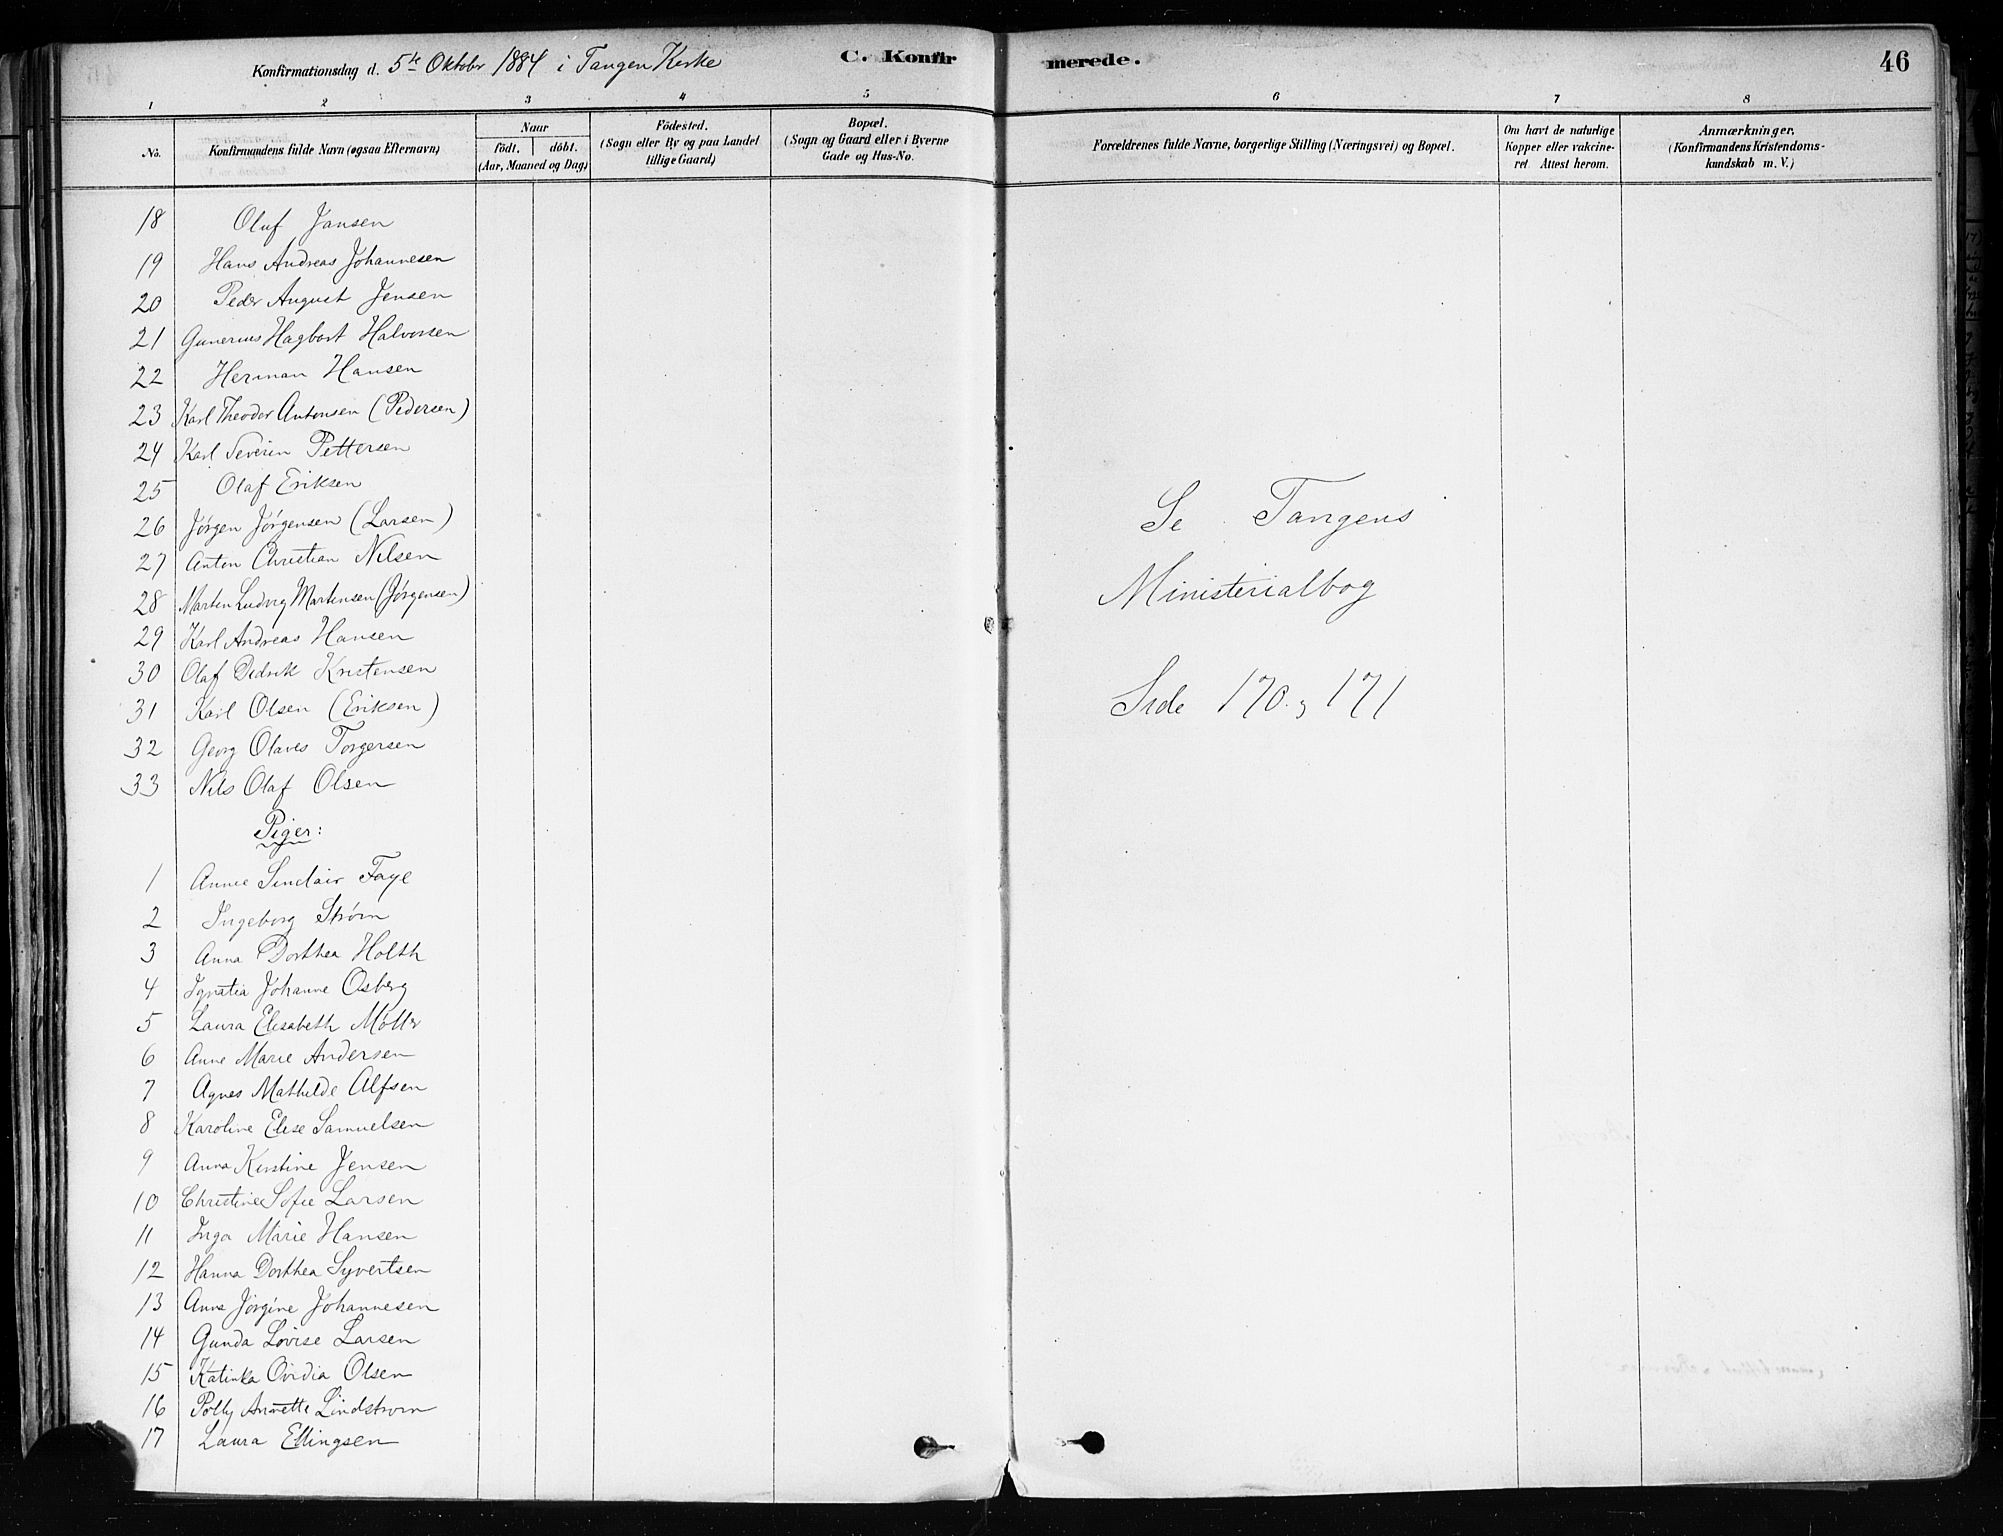 Konfirmationsdag d. 5te Oktober 1884 i Tangen Kirke
C. Konfirmerede.
46
1 2 3 4 5 6 7 8
No.
Konfirmandens fulde Navn (ogsaa Efternavn)
Naar
født. døbt.
(Aar, Maaned og Dag)
Fødested.
(Sogn eller By og paa Landet
tillige Gaard)
Bopæl.
(Sogn og Gaard eller i Byerne
Gade og Hus-No.
Forældrenes fulde Navne, borgerlige Stilling (Næringsvei) og Bopæl.
Om havt de naturlige
Kopper eller vakcine-
ret Attest herom.
Anmærkninger.
(Konfirmandens Kristendoms-
kundskab m. V.)
18 Oluf Jansen
19 Hans Andreas Johannesen
20 Peder August Jensen
21 Gunerius Hagbart Halvorsen
22 Herman Hansen
23 Karl Theodor Antonsen (Pedersen)
24 Karl Severin Pettersen
25 Olaf Eriksen
26 Jørgen Jørgensen (Larsen)
27 Anton Christian Nilsen
28 Marten Ludvig Martensen (Jørgensen)
29 Karl Andreas Hansen
30 Olaf Didrik Kristensen
31 Karl Olsen (Eriksen)
32 Georg Olaves Torgersen
33 Nils Olaf Olsen
Piger:
1 Annie Sinclair Faye
2 Ingeborg Strøm
3 Anna Dorthea Holth
4 Ignatia Johanne Osberg
5 Laura Elisabeth Møller
6 Anne Marie Andersen
7 Agnes Mathilde Alfsen
8 Karoline Elise Samuelsen
9 Anna Kirstine Jensen
10 Christine Sofie Larsen
11 Inga Marie Hansen
12 Hanna Dorthea Syvertsen
13 Anna Jørgine Johannesen
14 Gunda Lovise Larsen
15 Katinka Ovidia Olsen
16 Polly Annette Lindstrøm
17 Laura Ellingsen
Se Tangens
Ministerialbog
Side 170 171